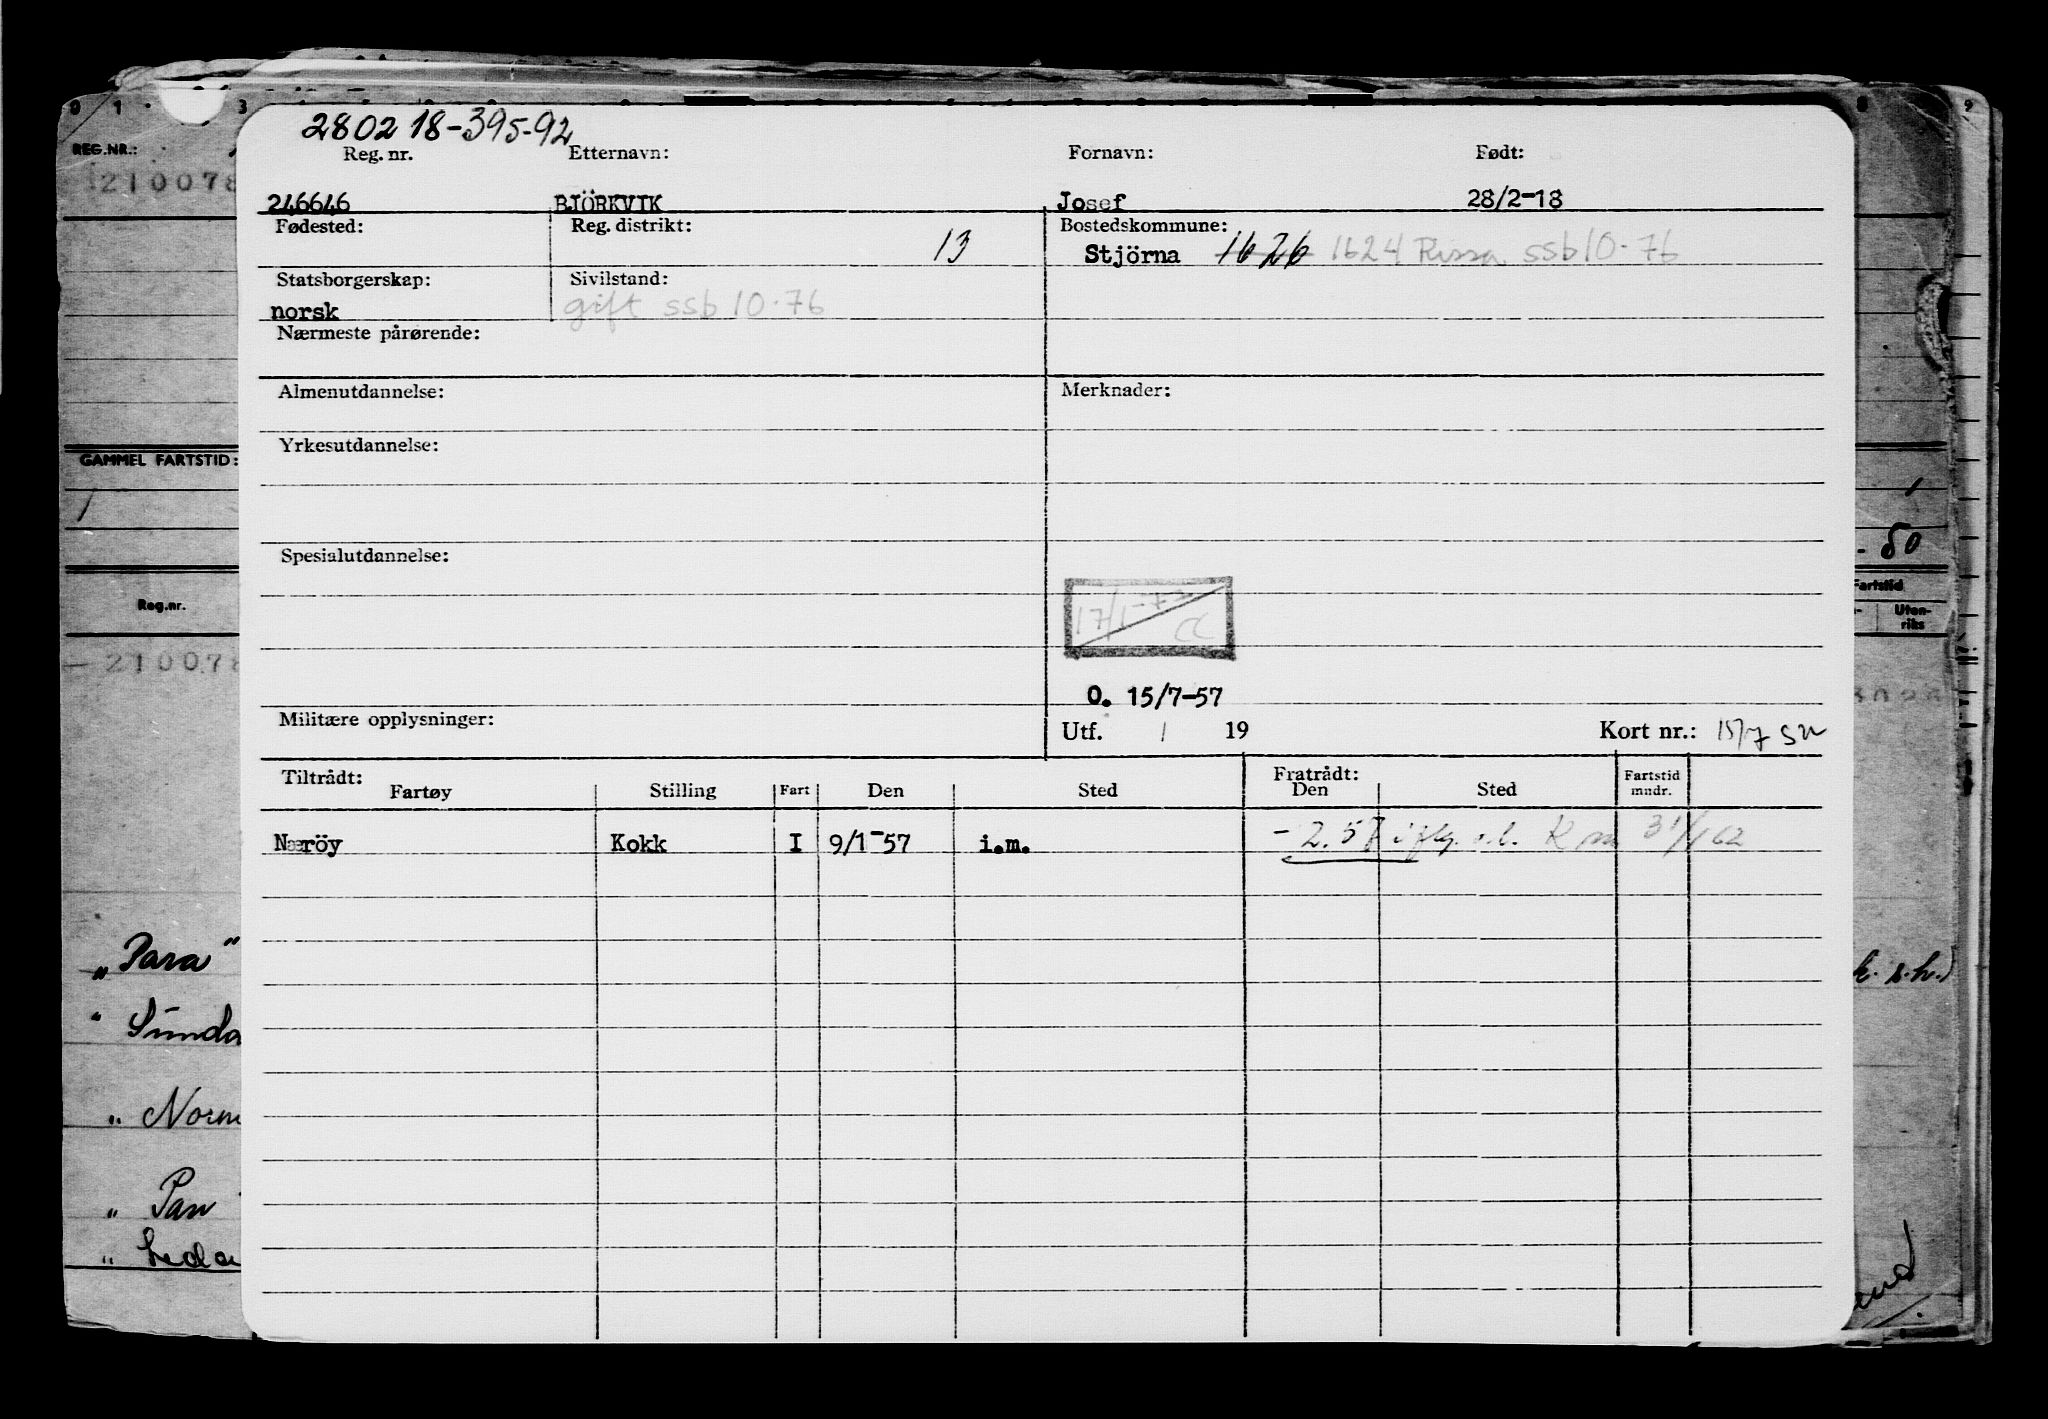 280218-395-92
Reg. nr. Etternavn: Fornavn: Født:
246646 BJÖRKVIK Josef 28/2-18
Fødested: Reg. distrikt: 13 Bostedskommune:
Stjörna 1626 1624 Rissa ssb 10-76
Statsborgerskap: Sivilstand:
norsk gift ssb 10-76
Nærmeste pårørende:
Almenutdannelse: Merknader:
Yrkesutdannelse:
Spesialutdannelse:
17/1-72
CC
O. 15/7-57
Militære opplysninger: Utf. / 19 Kort nr.: 15/7 sn
Tiltrådt: Fratrådt:
Fartøy Stilling Fart Den Sted Den Sted Fartstid mndr.
Næröy Kokk I 9/1-57 i.m. - 2.57 iflg. 31/1 62
REG.NR.:
210078
GAMMEL FARTSTID:
1
- 50
Reg.nr.
Fartstid
Uten-
riks
- 210078
„Para"
k. s.h.)
" Sunda
„ Norm
„ Pan
„ Leda